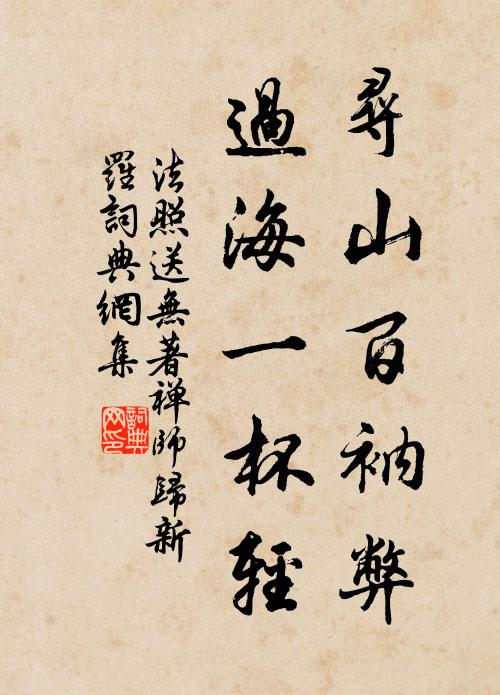 尋山百衲弊
過海一杯輕
法照送無著禅師歸新
羅詞典網集
詞典网印